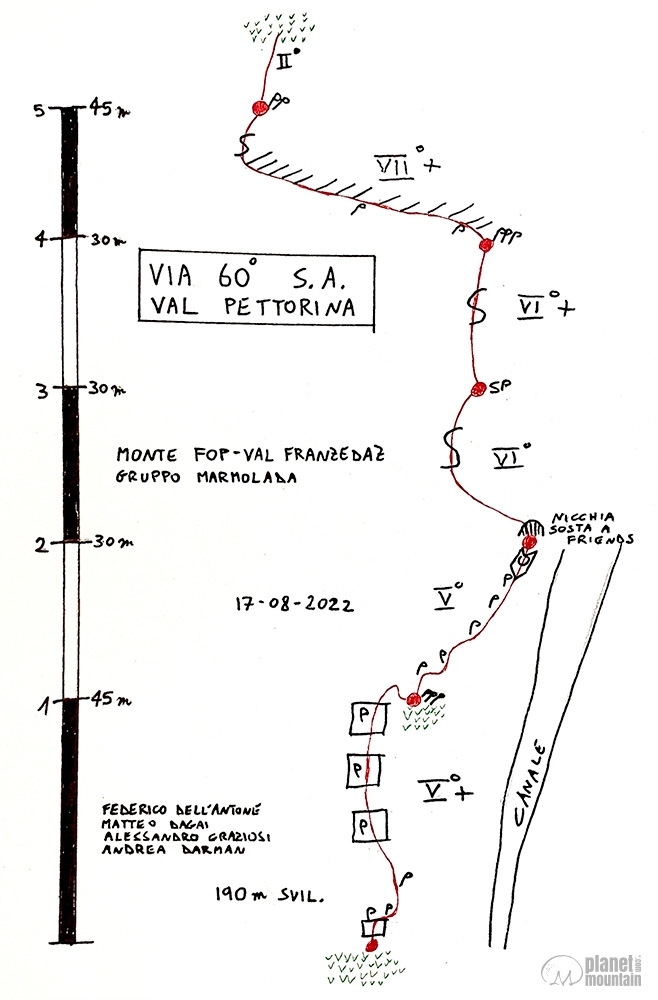 II°
5 45 m
PP
VII°+
P
P
PPP
4 30 m
VIA 60° S.A.
VAL PETTORINA
VI°+
3 30 m
SP
MONTE FOP-VAL FRANZEDAZ
GRUPPO MARMOLADA
VI°
NICCHIA
SOSTA A
FRIENDS
2 30 m
C
P
17-08-2022
V°
P
P
P
P
1 45 m
P
P
V°+
CANALE
FEDERICO DELL'ANTONE
MATTEO DAGAI
ALESSANDRO GRAZIOSI
ANDREA DARMAN
P
190 m SVIL.
P
P P
planet
mountain
.com